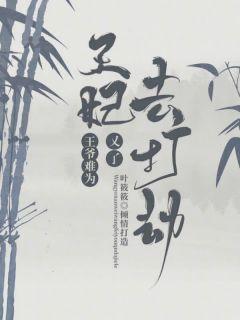 王爷难为
王妃
又
去打劫
了
叶筱筱◎倾情打造